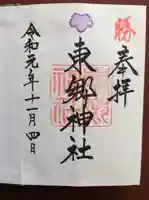 勝
奉拝
東郷神社
令和元年十一月四日